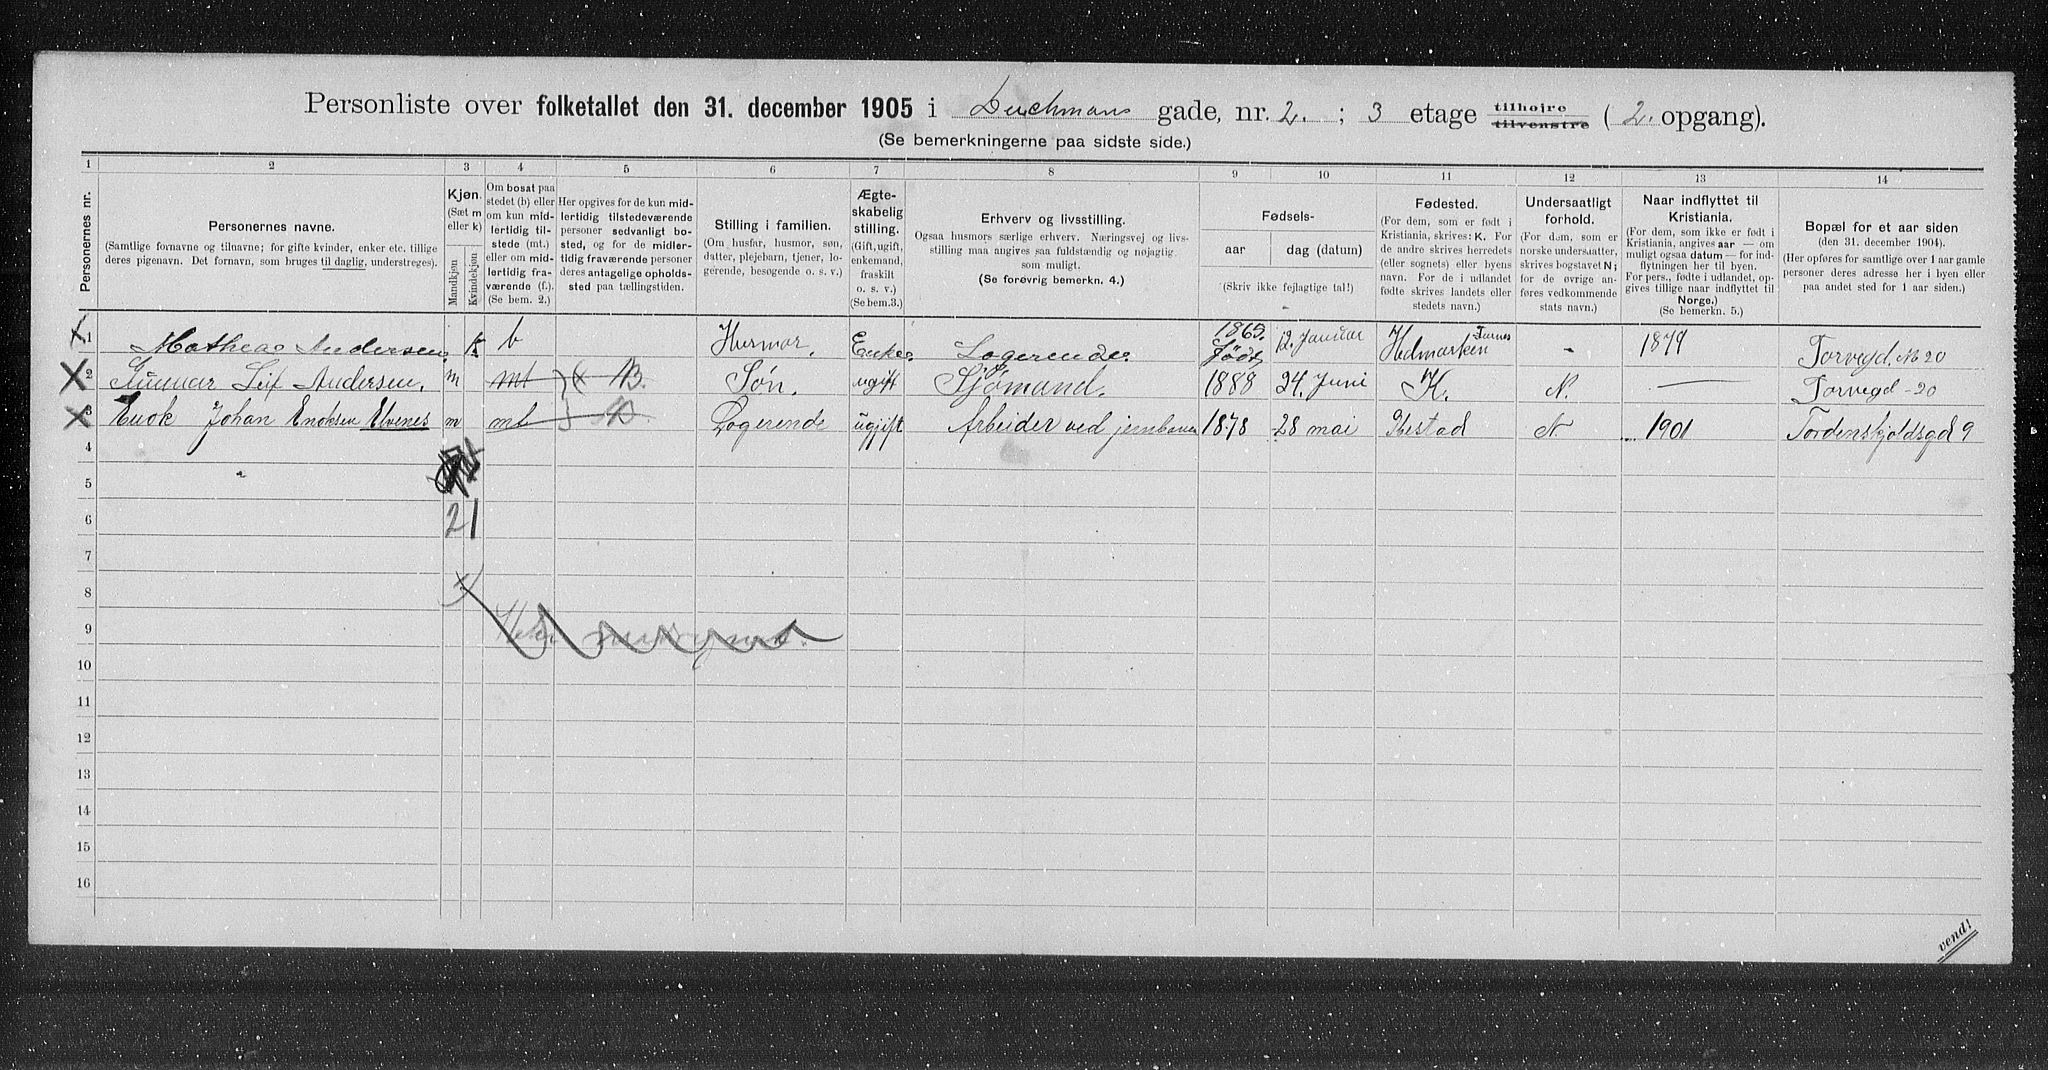 Personliste over folketallet den 31. december 1905 i Deichmans gade, nr. 2. ; 3 etage tilhøjre tilvenstre ( 2. opgang).
(Se bemerkningerne paa sidste side.)
1 2 3 4 5 6 7 8 9 10 11 12 13 14
Personernes nr.
Personernes navne.
(Samtlige fornavne og tilnavne; for gifte kvinder, enker etc. tillige
deres pigenavn. Det fornavn, som bruges til daglig, understreges).
Kjøn.
(Sæt m
eller k)
Mandkjøn
Kvindekjøn
Om bosat paa
stedet (b) eller
om kun mid-
lertidig til-
stede (mt.)
eller om mid-
lertidig fra-
værende (f.).
(Se bem. 2.)
Her opgives for de kun mid-
lertidig tilstedeværende
personer sedvanlig bo-
sted, og for de midler-
tidig fraværende personer
deres antagelige opholds-
sted paa tællingstiden.
Stilling i familien.
(Om husfar, husmor, søn,
datter, plejebarn, tjener, lo-
gerende, besøgende o. s. v.)
Ægte-
skabelig
stilling.
(Gift, ugift,
enkemand,
fraskilt
o. s. v.)
(Se bem.3.)
Erhverv og livsstilling.
Ogsaa husmors særlige erhverv. Næringsvej og livs-
stilling maa angives saa fuldstændig og nøjagtig
som muligt.
(Se forøvrig bemerkn. 4.)
Fødsels-
aar dag (datum)
(Skriv ikke fejlagtige tal!)
Fødested.
(For dem, som er født i
Kristiania, skrives: K. For
de andre skrives herredets
(eller sognets) eller byens
navn. For de i udlandet
fødte skrives landets eller
stedets navn.)
Undersaatligt
forhold.
(For dem, som er
norske undersaatter,
skrives bogstavet N;
for de øvrige an-
føres vedkommende
stats navn.)
Naar indflyttet til
Kristiania.
(For dem, som ikke er født i
Kristiania, angives aar — om
muligt ogsaa datum — for ind-
flytningen her til byen.
For pers., fødte i udlandet, op-
gives tillige naar indflyttet til
Norge.)
(Se bemerkn. 5.)
Bopæl for et aar siden
(den 31. december 1904).
(Her opføres for samtlige over 1 aar gamle
personer deres adresse her i byen eller
paa andet sted for 1 aar siden.)
1 Mathea Andersen. K b Husmor. Enke. Logerende 1865 Født 12. Januar Hedmarken Furnes - 1879 Torvegd. № 20
2 Gunnar Leif Andersen. m mt B. Søn. ugift Sjømand. 1888 24. Juni K. N. — Torvegd - 20
3 Enok Johan Enoksen Elvenes m mt Logerende ugift Arbeider ved jernbanen 1878 28 mai Ibestad N. 1901 Tordenskjoldsgd 9
4
5
6 2 1
7
8
9
10
11
12
13
14
15
16
vend!